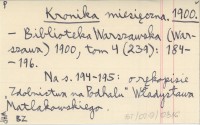 P
Kronika miesięczna. 1900.
– Biblioteka Warszawska (War-
szawa) 1900, tom 4 (239): 184-
– 196.
Na s. 194-195: o rękopisie
Zdobnictwa na Podhalu" Władysława
Matlakowskiego.
BZ